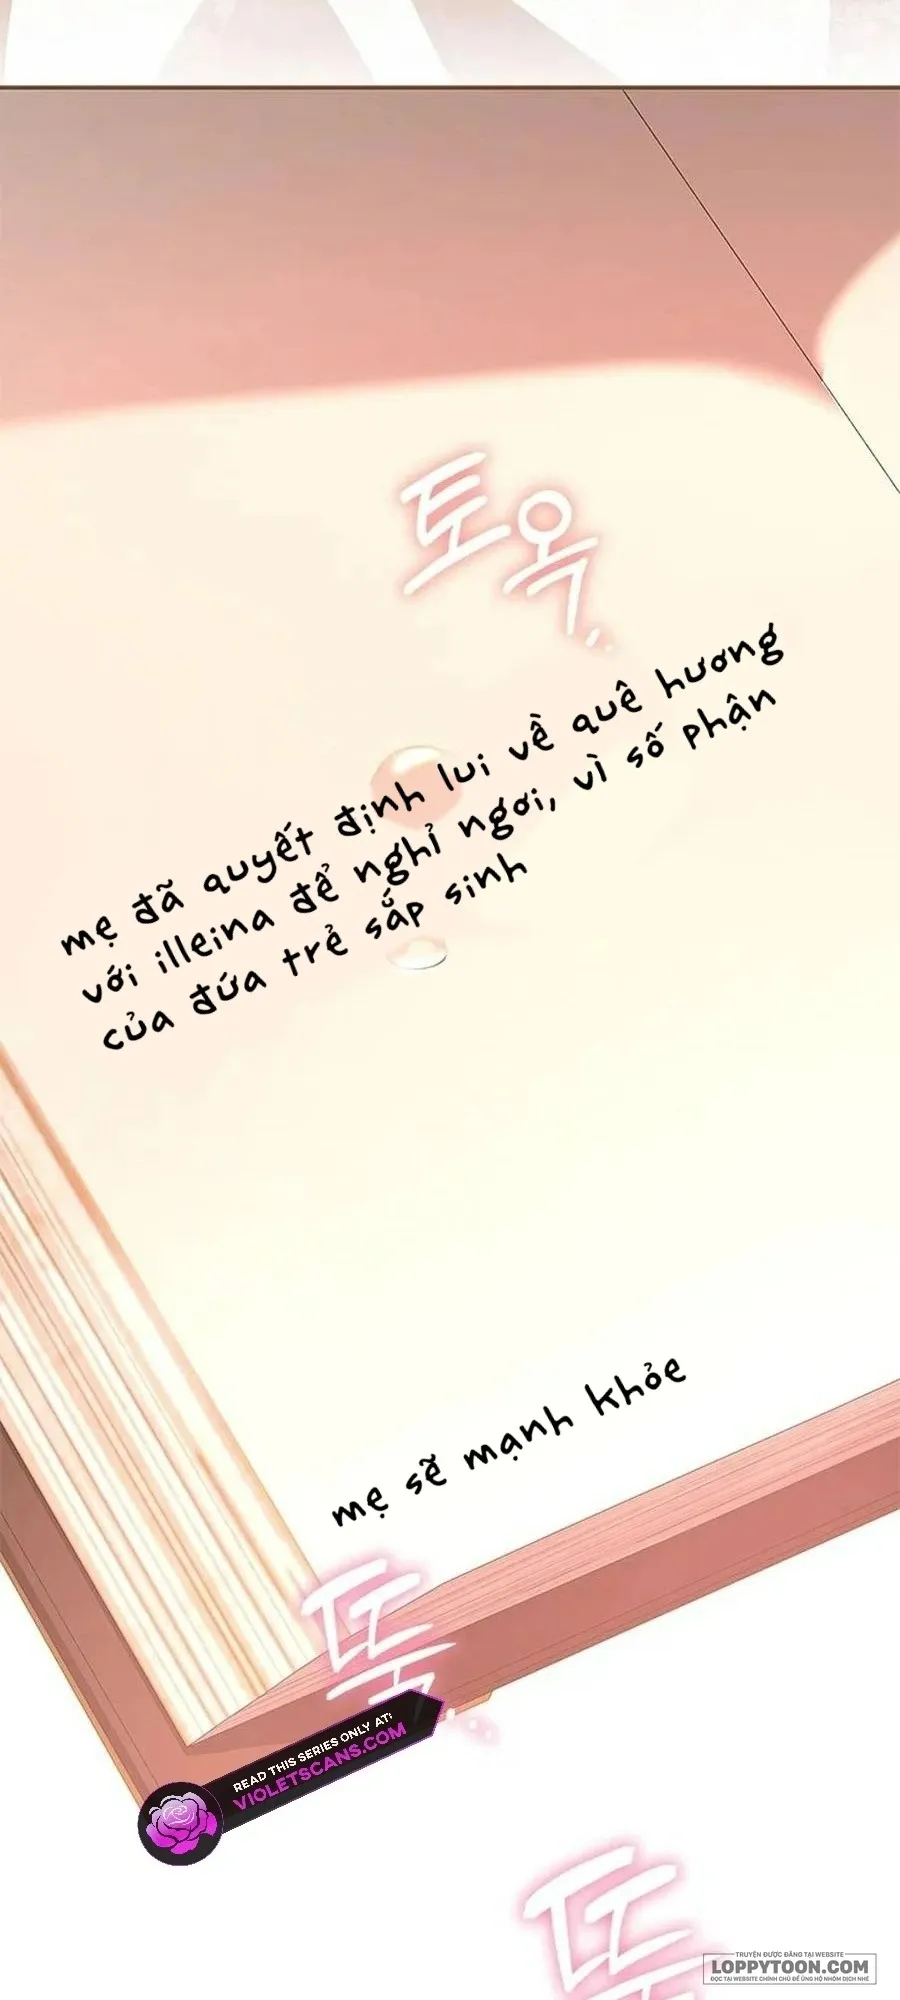 토옥
mẹ đã quyết định lui về quê hương
với illeina để nghỉ ngơi, vì số phận
của đứa trẻ sắp sinh
mẹ sẽ mạnh khỏe
뚝
READ THIS SERIES ONLY AT:
VIOLETSCANS.COM
뚝
TRUYỆN ĐƯỢC ĐĂNG TẠI WEBSITE
LOPPYTOON.COM
ĐỌC TẠI WEBSITE CHÍNH CHỦ ĐỂ ỦNG HỘ NHÓM DỊCH NHÉ